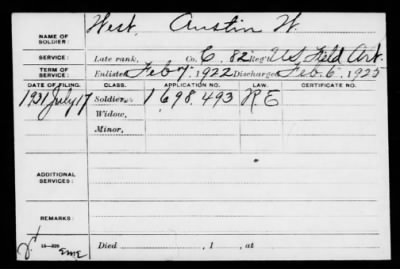 NAME OF SOLDIER: West, Austin W.
SERVICE: Late rank, Co. C. 82 Reg't U.S. Field Art.
TERM OF SERVICE: Enlisted Feb 7, 1922 Discharged Feb. 6, 1925
DATE OF FILING. CLASS. APPLICATION NO. LAW. CERTIFICATE NO.
1931 July 17 Soldier, 1698,493 RE
Widow,
Minor,
ADDITIONAL SERVICES:
REMARKS:
Died , 1 , at